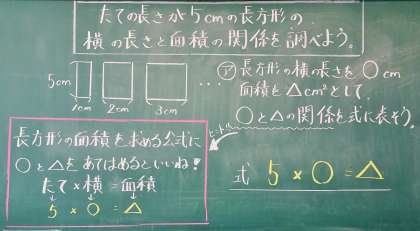 たての長さが5cmの長方形の
横の長さと面積の関係を調べよう。
5cm
1cm 2cm 3cm
…
㋐ 長方形の横の長さを○cm
面積を△cm²として、
○と△の関係を式に表そう。
ヒント
長方形の面積を求める公式に
○と△をあてはめるといいね!
たて×横=面積
5×○=△
式 5×○=△